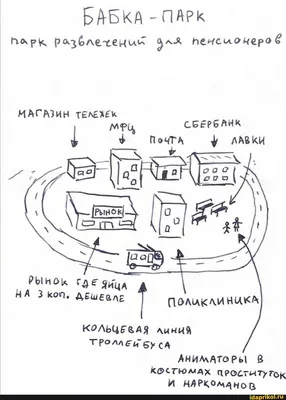 БАБКА - ПАРК
парк развлечений для пенсионеров
МАГАЗИН ТЕЛЕЖЕК
МФЦ
ПОЧТА
СБЕРБАНК
ЛАВКИ
РЫНОК
РЫНОК ГДЕ ЯЙЦА
НА 3 КОП. ДЕШЕВЛЕ
ПОЛИКЛИНИКА
КОЛЬЦЕВАЯ ЛИНИЯ
ТРОЛЛЕЙБУСА
АНИМАТОРЫ В
КОСТЮМАХ ПРОСТИТУТОК
И НАРКОМАНОВ
idaprikol.ru